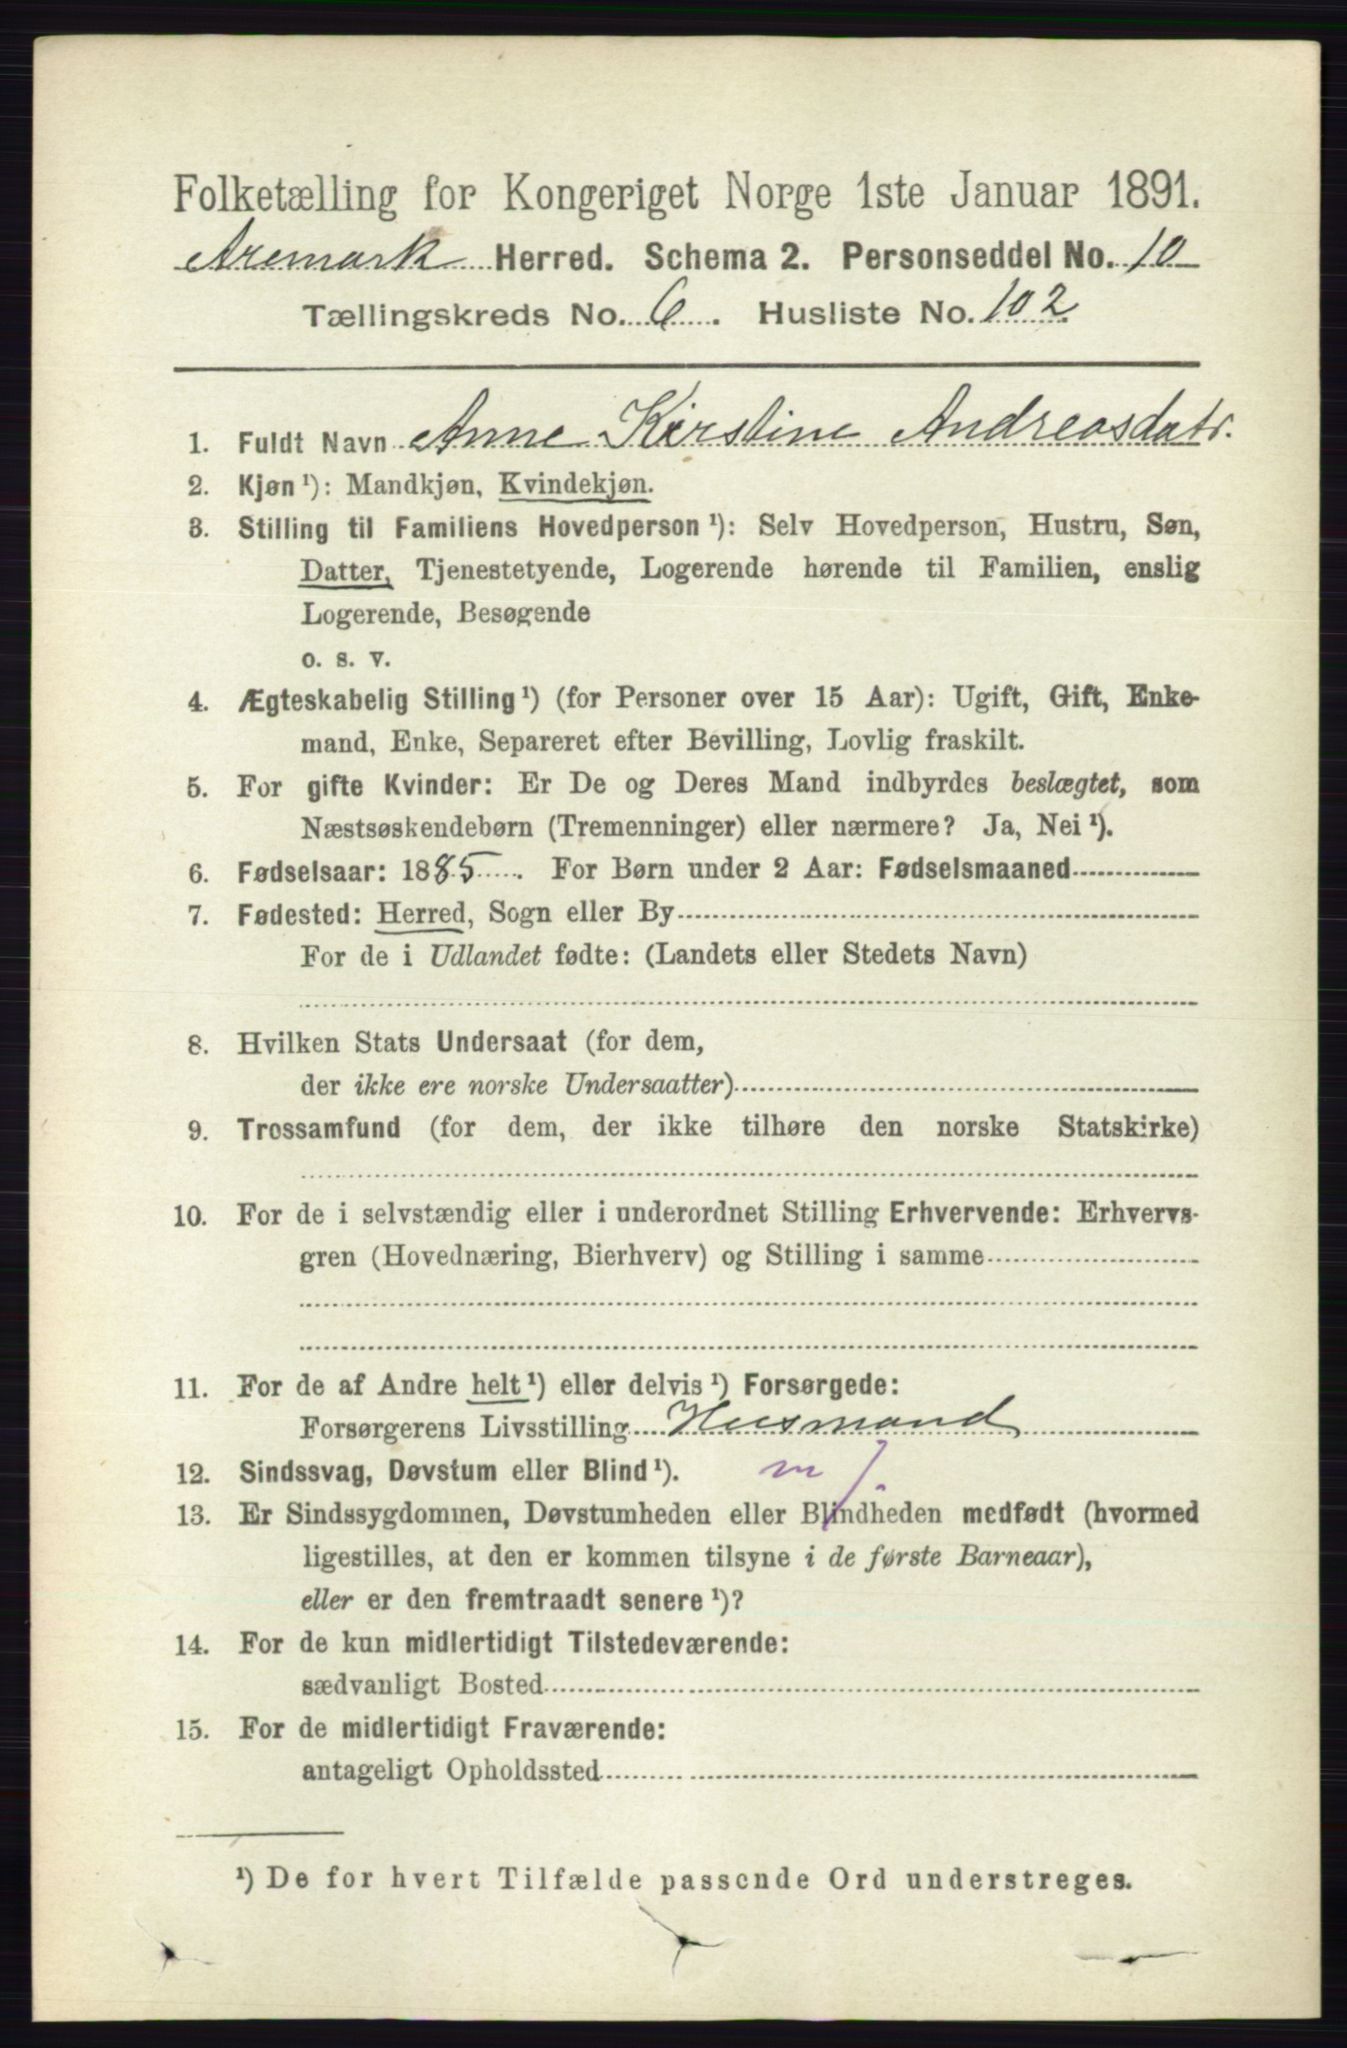 Folketælling for Kongeriget Norge 1ste Januar 1891.
Aremark Herred. Schema 2. Personseddel No. 10
Tællingskreds No. 6. Husliste No. 102.
1. Fuldt Navn Anne Kirstine Andreasdatr.
2. Kjøn ¹): Mandkjøn, Kvindekjøn.
3. Stilling til Familiens Hovedperson ¹): Selv Hovedperson, Hustru, Søn,
Datter, Tjenestetyende, Logerende hørende til Familien, enslig
Logerende, Besøgende
o. s. v.
4. Ægteskabelig Stilling ¹) (for Personer over 15 Aar): Ugift, Gift, Enke-
mand, Enke, Separeret efter Bevilling, Lovlig fraskilt.
5. For gifte Kvinder: Er De og Deres Mand indbyrdes beslægtet, som
Næstsøskendebørn (Tremenninger) eller nærmere? Ja, Nei ¹).
6. Fødselsaar: 1885. For Børn under 2 Aar: Fødselsmaaned
7. Fødested: Herred, Sogn eller By
For de i Udlandet fødte: (Landets eller Stedets Navn)
8. Hvilken Stats Undersaat (for dem,
der ikke ere norske Undersaatter)
9. Trossamfund (for dem, der ikke tilhøre den norske Statskirke)
10. For de i selvstændig eller i underordnet Stilling Erhvervende: Erhvervs-
gren (Hovednæring, Bierhverv) og Stilling i samme
11. For de af Andre helt ¹) eller delvis ¹) Forsørgede:
Forsørgerens Livsstilling Husmand
12. Sindssvag, Døvstum eller Blind ¹). m j.
13. Er Sindssygdommen, Døvstumheden eller Blindheden medfødt (hvormed
ligestilles, at den er kommen tilsyne i de første Barneaar),
eller er den fremtraadt senere ¹)?
14. For de kun midlertidigt Tilstedeværende:
sædvanligt Bosted
15. For de midlertidigt Fraværende:
antageligt Opholdssted
¹) De for hvert Tilfælde passende Ord understreges.